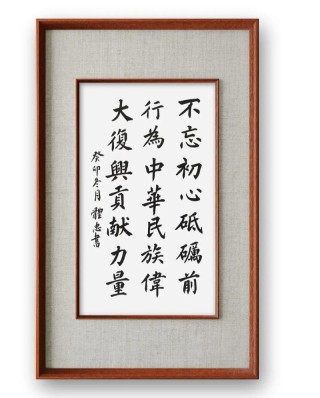 不忘初心砥礪前
行為中華民族偉
大復興貢献力量
癸卯冬月 體忠書